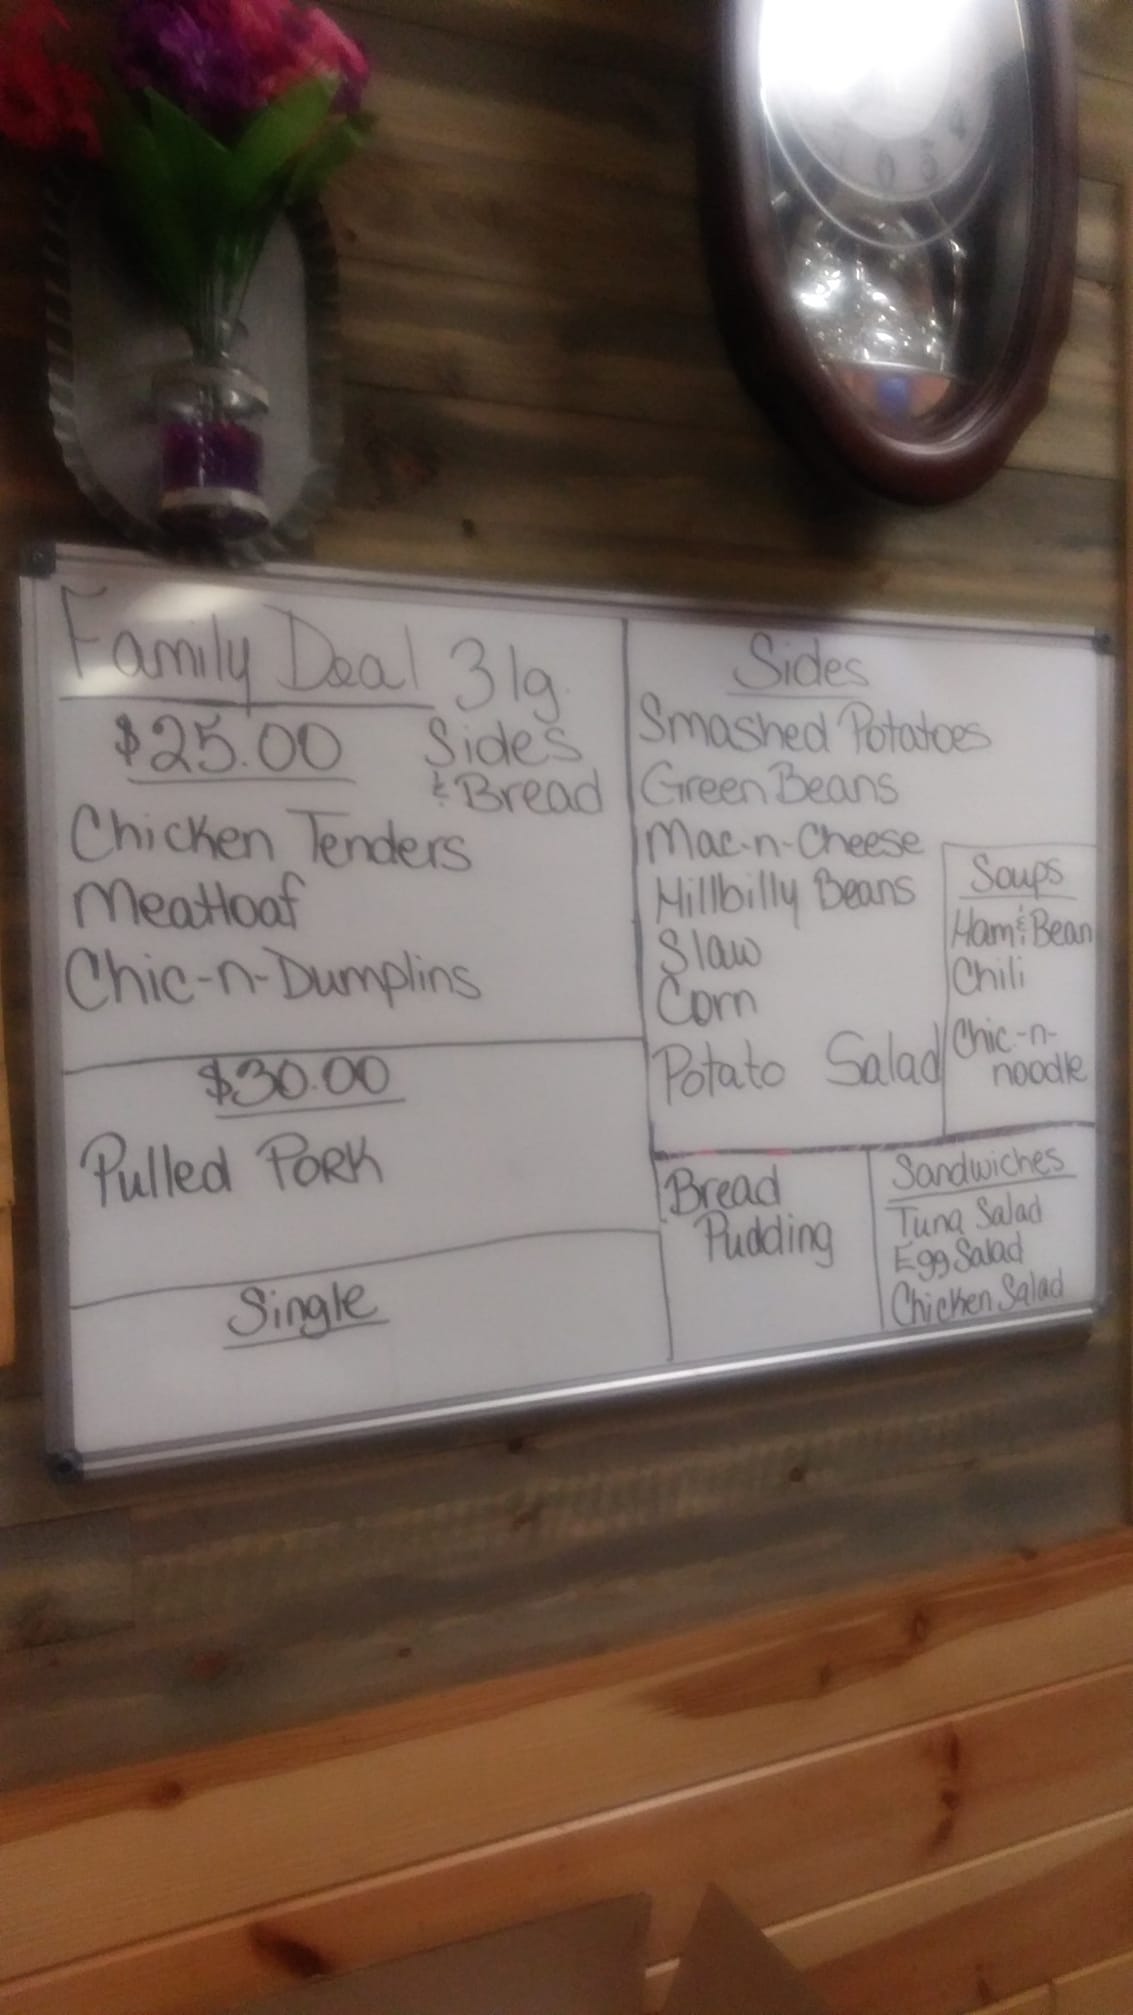 Family Deal 3 lg.
$25.00 Sides
& Bread
Chicken Tenders
Meatloaf
Chic-n-Dumplins
$30.00
Pulled Pork
Single
Sides
Smashed Potatoes
Green Beans
Mac-n-Cheese
Hillbilly Beans
Slaw
Corn
Potato Salad
Soups
Ham & Bean
Chili
Chic-n-
noodle
Bread
Pudding
Sandwiches
Tuna Salad
Egg Salad
Chicken Salad
4
5